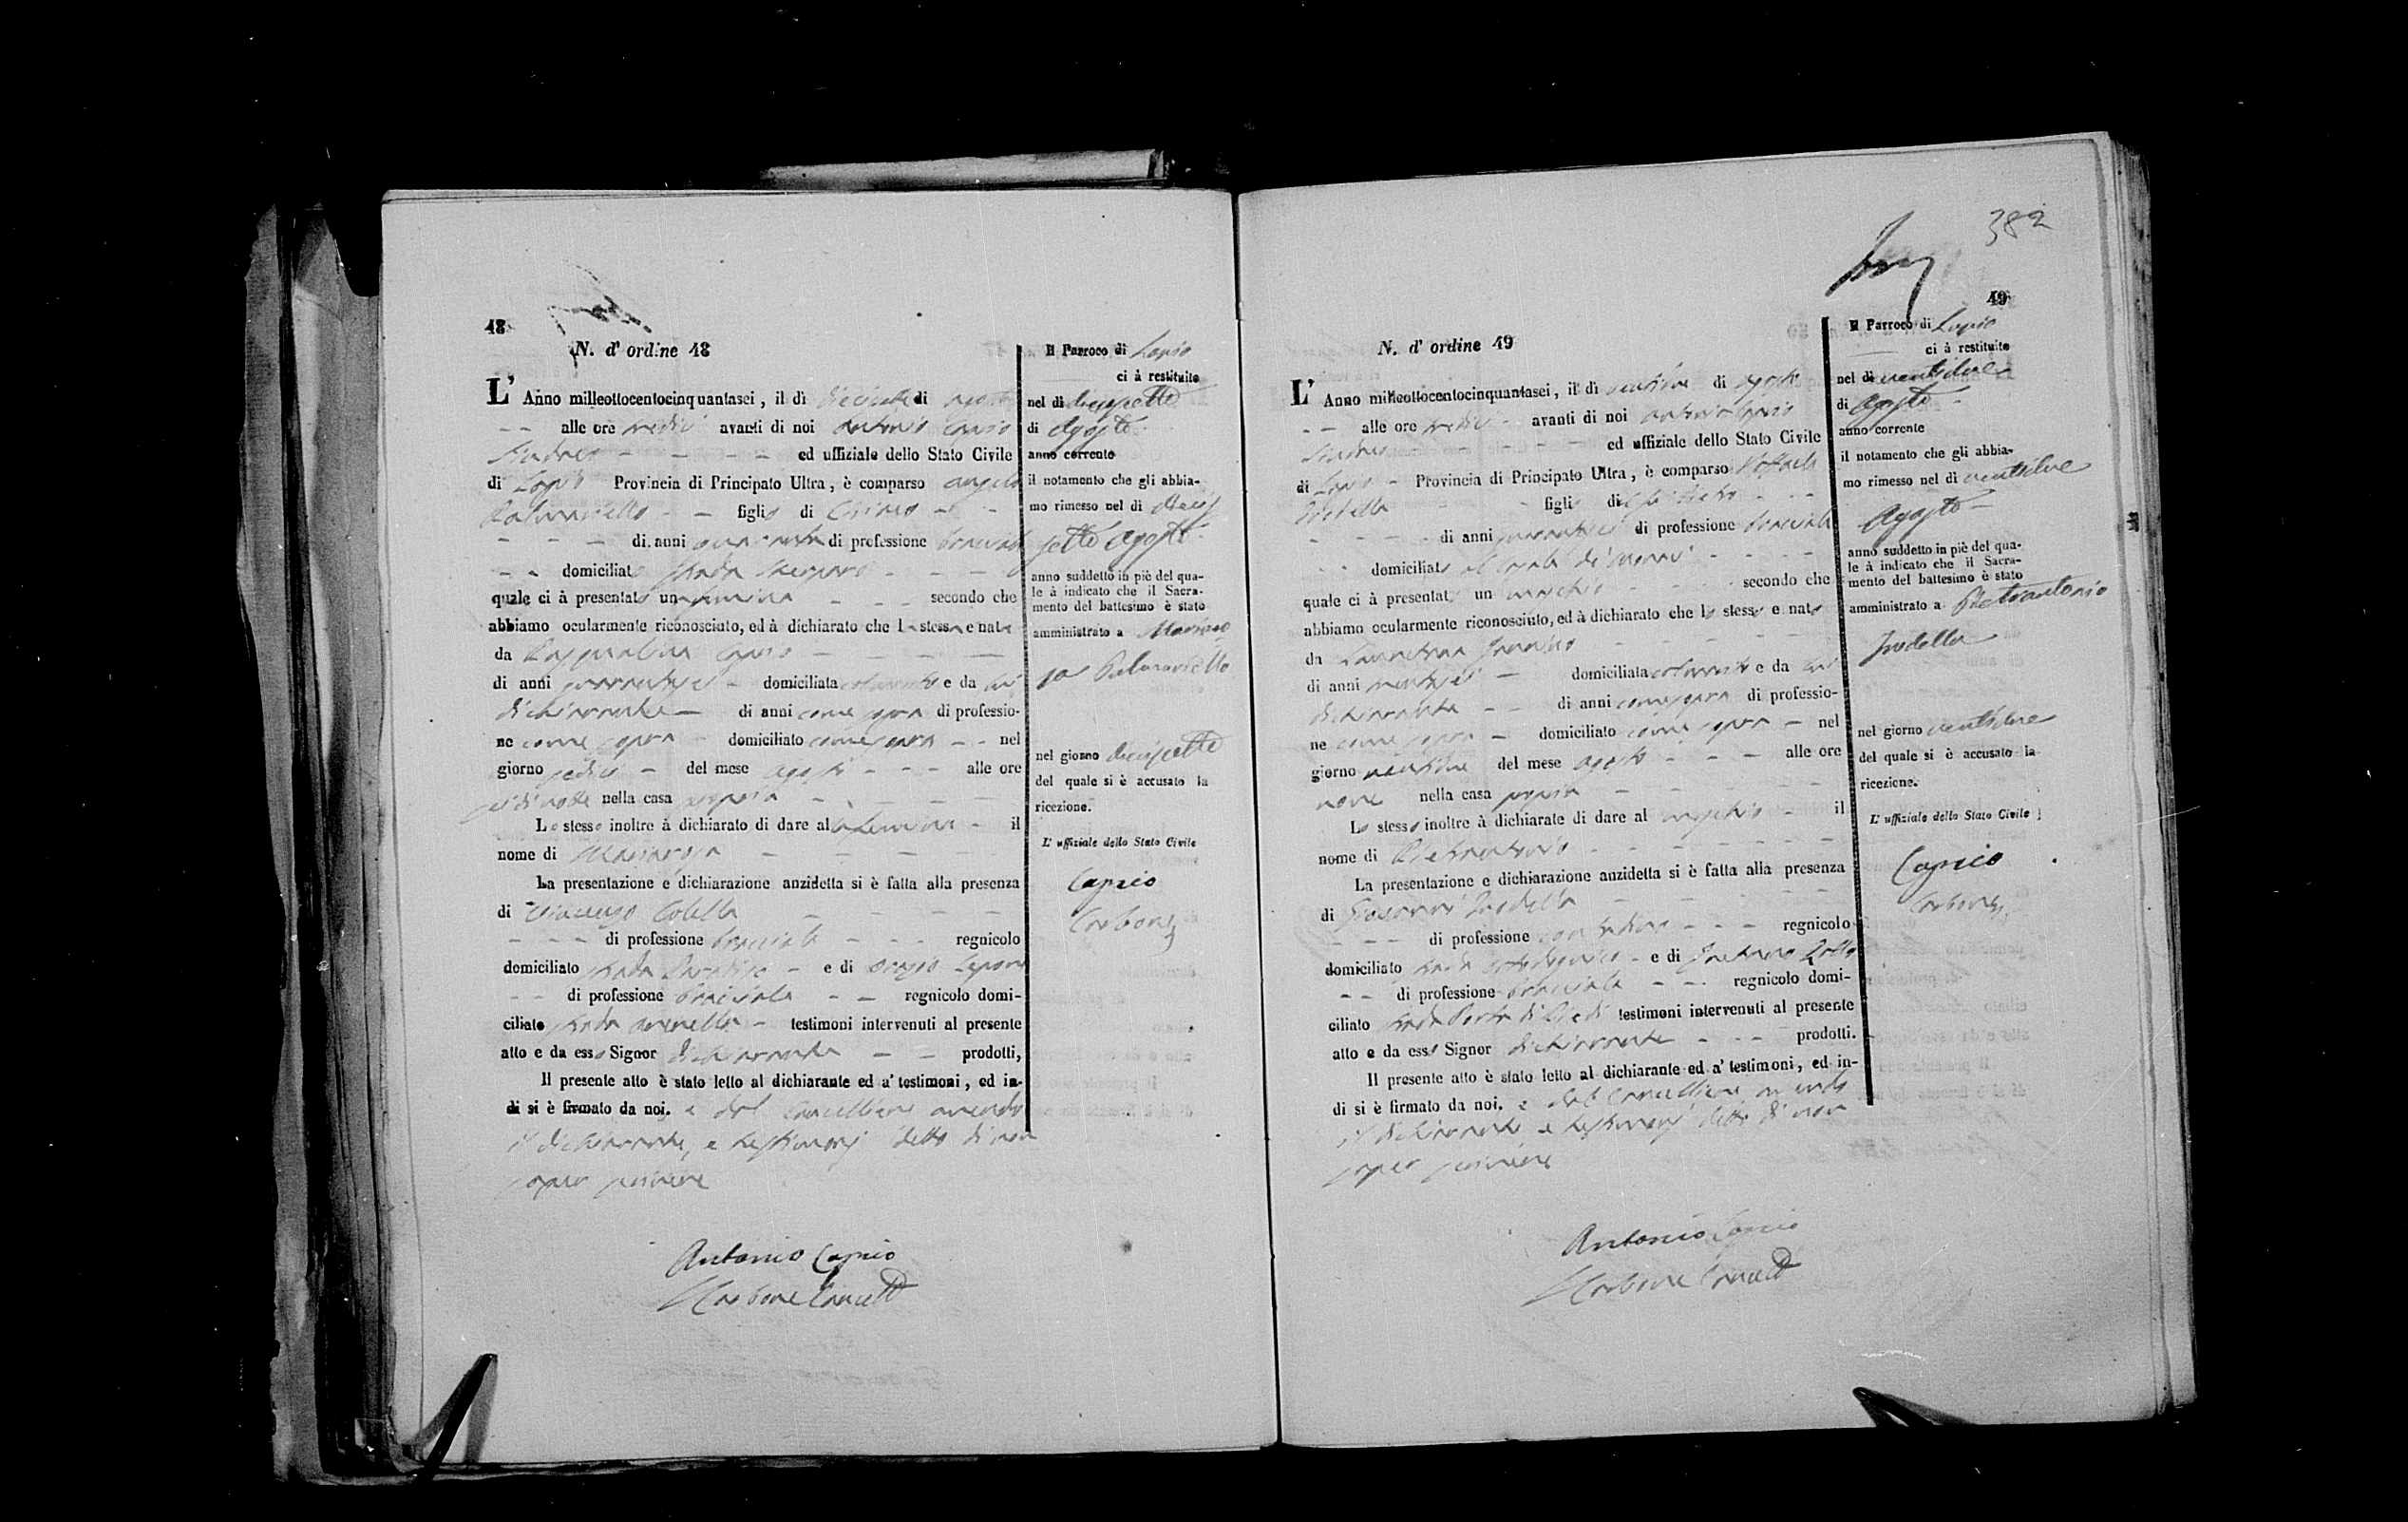 48
N. d' ordine 48
L' Anno milleottocentocinquantasei, il dì diecisette di agosto
alle ore tredici avanti di noi Antonio Caprio
Sindaco ed uffiziale dello Stato Civile
di Lapio Provincia di Principato Ultra, è comparso Angelo
Palmariello figlio di Ciriaco
di anni quaranta di professione bracciale
domiciliato strada
quale ci à presentato una femina secondo che
abbiamo ocularmente riconosciuto, ed à dichiarato che la stessa e nata
da Pasqualina Caprio
di anni quarantasei domiciliata col marito e da lui
dichiarante di anni come sopra di professio-
ne come sopra domiciliato come sopra nel
giorno sedici del mese agosto alle ore
sei di notte nella casa propria
Lo stesso inoltre à dichiarato di dare alla femina il
nome di Mariarosa
La presentazione e dichiarazione anzidetta si è fatta alla presenza
di Vincenzo Colella
di professione bracciale regnicolo
domiciliato strada e di Orazio Lepore
di professione bracciale regnicolo domi-
ciliato strada testimoni intervenuti al presente
atto e da esso Signor dichiarante prodotti,
Il presente atto è stato letto al dichiarante ed a' testimoni, ed in-
di si è firmato da noi. e dal Cancelliere avendo
il dichiarante, e testimonj detto di non
saper scrivere
Antonio Caprio
Carbone Cancell
Il Parroco di Lapio
ci à restituito
nel dì diecisette
di Agosto
anno corrente
il notamento che gli abbia-
mo rimesso nel dì diecis
sette Agosto
anno suddetto in piè del qua-
le à indicato che il Sacra-
mento del battesimo è stato
amministrato a Mariaro
sa Palmariello
nel giorno diecisette
del quale si è accusato la
ricezione.
L' uffiziale dello Stato Civile
Caprio
Carbone
382
49
N. d' ordine 49
L' Anno milleottocentocinquantasei, il dì ventidue di agosto
alle ore tredici avanti di noi Antonio Caprio
Sindaco ed uffiziale dello Stato Civile
di Lapio Provincia di Principato Ultra, è comparso Raffaele
Irodella figlio di
di anni di professione bracciale
domiciliato
quale ci à presentato un maschio secondo che
abbiamo ocularmente riconosciuto, ed à dichiarato che lo stesso e nato
da
di anni domiciliata col marito e da lui
dichiarante di anni come sopra di professio-
ne come sopra domiciliato come sopra nel
giorno ventidue del mese agosto alle ore
nove nella casa propria
Lo stesso inoltre à dichiarato di dare al maschio il
nome di Pietrantonio
La presentazione e dichiarazione anzidetta si è fatta alla presenza
di Giovanni Irodella
di professione contadino regnicolo
domiciliato strada e di Gaetano
di professione bracciale regnicolo domi-
ciliato strada Porta di Piedi testimoni intervenuti al presente
atto e da esso Signor dichiarante prodotti.
Il presente atto è stato letto al dichiarante ed a' testimoni, ed in-
di si è firmato da noi. e dal Cancelliere avendo
il dichiarante e testimonj detto di non
saper scrivere
Antonio Caprio
Carbone Cancell
Il Parroco di Lapio
ci à restituito
nel dì ventidue
di Agosto
anno corrente
il notamento che gli abbia-
mo rimesso nel dì ventidue
Agosto
anno suddetto in piè del qua-
le à indicato che il Sacra-
mento del battesimo è stato
amministrato a Pietrantonio
Irodella
nel giorno ventidue
del quale si è accusato la
ricezione.
L' uffiziale dello Stato Civile
Caprio
Carbone